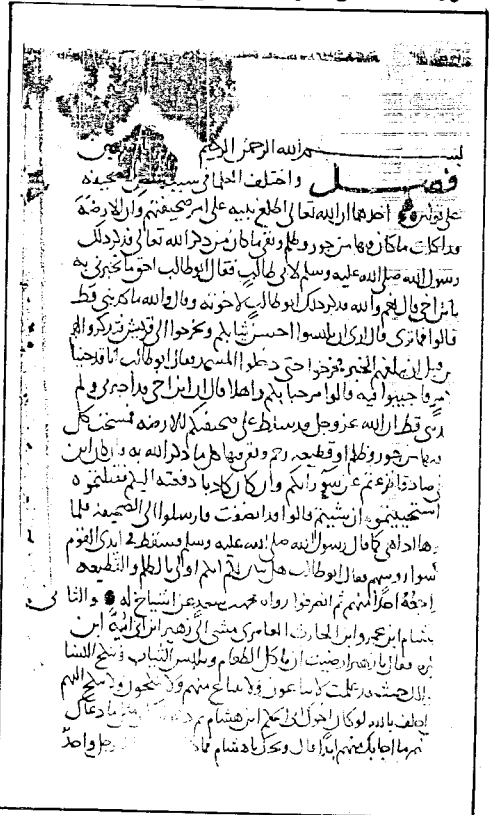 بسم الله الرحمن الرحيم
فصل واختلف العلما في سبب نقض الصحيفة
على قولين احدهما ان الله تعالى اطلع نبيه على امر صحيفتهم وان الارضة
قد اكلت ما كان فيها من جور وظلم وبقي ما كان من ذكر الله تعالى فذكر ذلك
رسول الله صلى الله عليه وسلم لابي طالب فقال ابو طالب احق ما تخبرني به
يا بن اخي قال نعم والله فذكر ذلك ابو طالب لاخوته وقال والله ما كذبني قط
قالوا فما ترى قال ارى ان تلبسوا احسن ثيابكم وتخرجوا الى قريش فتذكروا لهم
من قبل ان يبلغهم الخبر فخرجوا حتى دخلوا المسجد فقال ابو طالب انا قد جئنا
لامر فاجيبوا فيه قالوا مرحبا بكم واهلا قال ان ابن اخي قد اخبرني ولم
يكذبني قط ان الله عز وجل قد سلط على صحيفتكم الارضة فمسحت كل
فيها من جور وظلم او قطيعة رحم وبقي بها كل ما ذكر الله به فان كان ابن
اخي صادقا نزعتم عن سو رايكم وان كان كاذبا دفعته اليكم فقتلتموه
او استحييتموه ان شيتم قالوا قد انصفت فارسلوا الى الصحيفة فلما
فتحوها اذا هي كما قال رسول الله صلى الله عليه وسلم فسقط في ايدي القوم
نكسوا روسهم فقال ابو طالب هل تبين لكم انكم اولى بالظلم والقطيعة
فلم يراجعه احد منهم ثم انصرفوا رواه محمد بن سعد عن اشياخ له والثاني
هشام ابن عمرو ابن الحارث العامري مشى الى زهير ابن ابي امية ابن
فقال يا زهير ارضيت ان تاكل الطعام وتلبس الثياب وتنكح النسا
واخوالك حيث قد علمت لا يباعون ولا يبتاع منهم ولا ينكحون ولا ينكح اليهم
احلف بالله لو كان اخوال ابي الحكم ابن هشام ثم دعوته الى مثل ما دعاك
اليه منهم ما اجابك منهم ابدا قال ويحك يا هشام فماذا رجل واحد